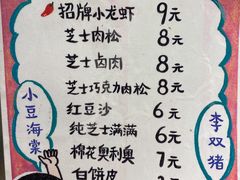 招牌小龙虾 9元
芝士肉松 8元
芝士卤肉 8元
芝士巧克力肉松 8元
红豆沙 6元
纯芝士满满 6元
棉花奥利奥 7元
白饼皮
小豆海棠
李双猪